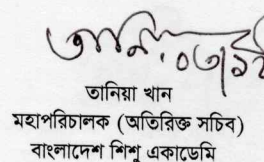 তানিয়া খান
মহাপরিচালক (অতিরিক্ত সচিব)
বাংলাদেশ শিশু একাডেমি